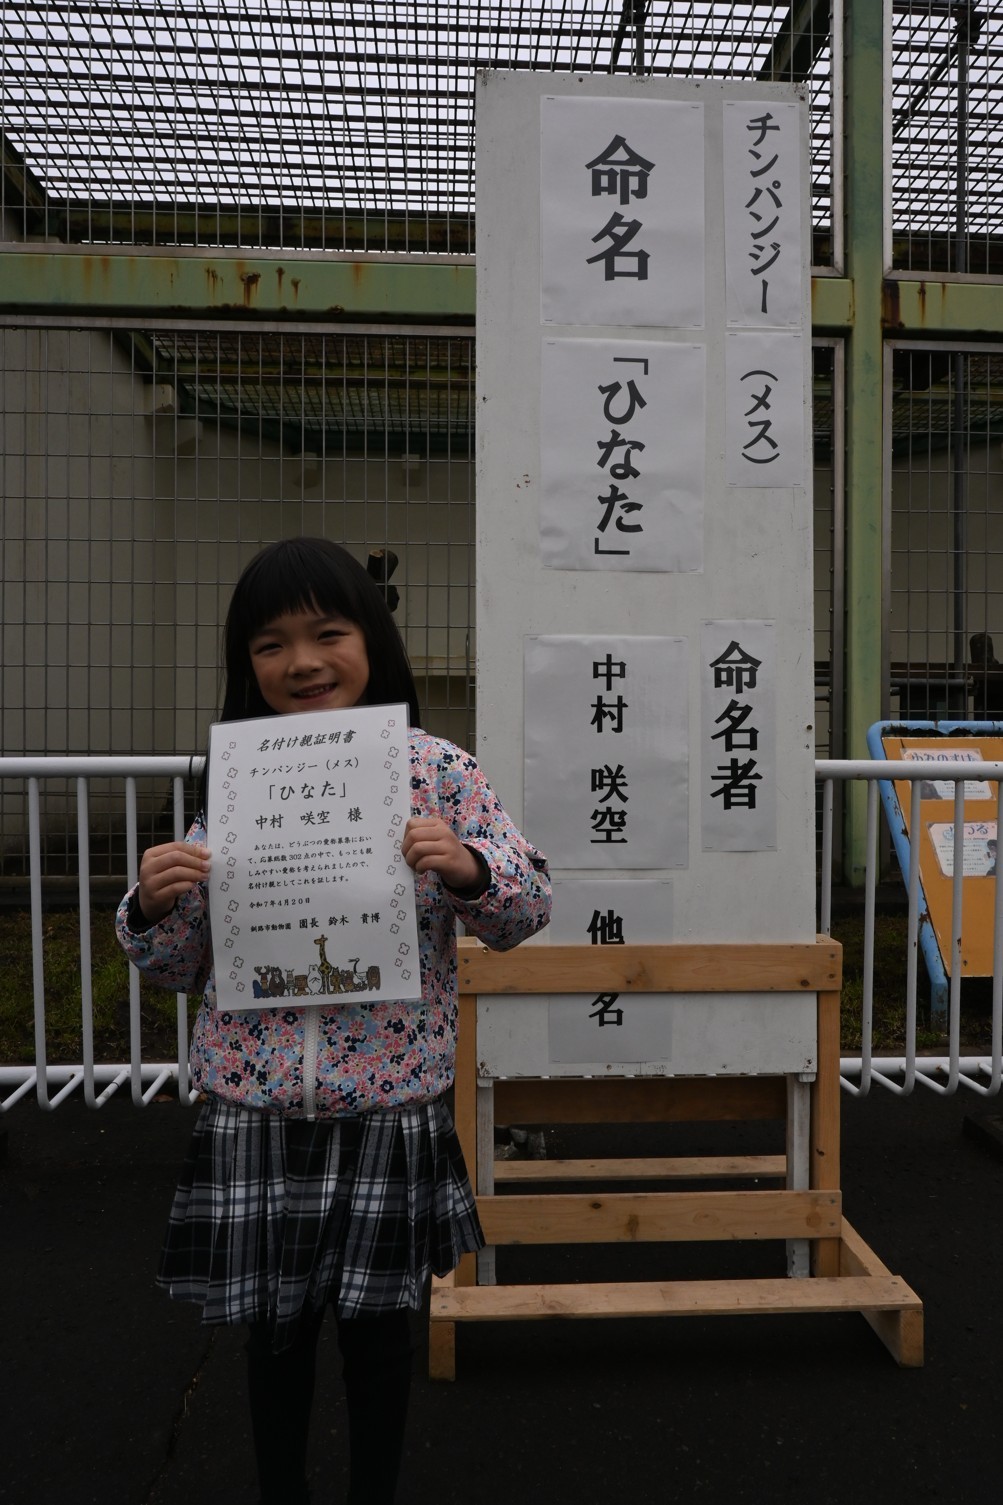 チンパンジー
（メス）
命名
「ひなた」
命名者
中村 咲空
他
名
名付け親証明書
チンパンジー（メス）
「ひなた」
中村 咲空 様
あなたは、どうぶつの愛称募集におい
て、応募総数302点の中で、もっとも親
しみやすい愛称を考えられましたので、
名付け親としてこれを証します。
令和7年4月20日
釧路市動物園 園長 鈴木 貴博